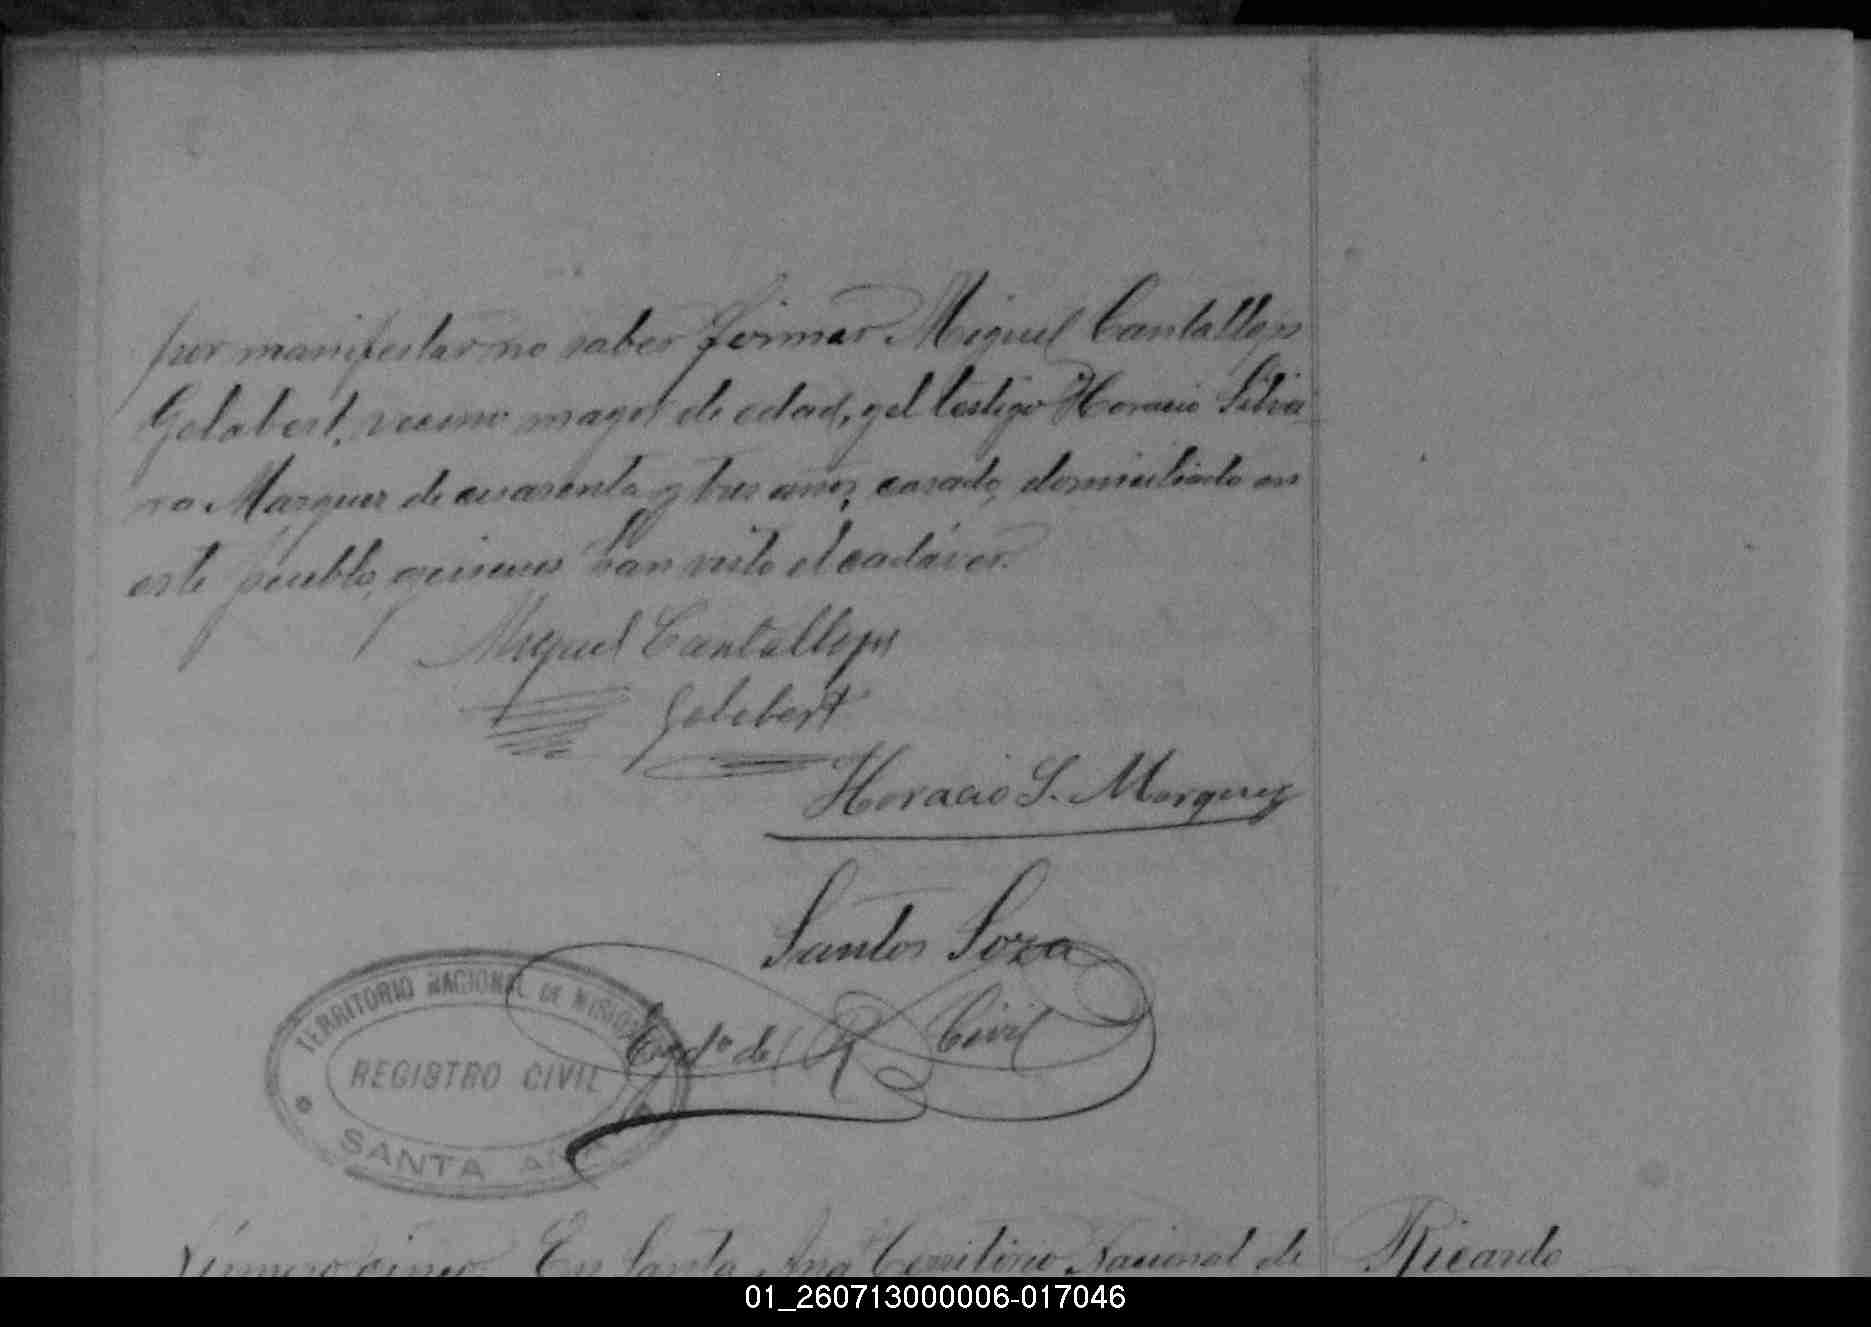 por manifestar no saber firmar Miguel Cantallops
Gelabert, vecino mayor de edad, y el testigo Horacio Silvia-
no Marquez de cuarenta y tres años, casado, domiciliado en
este pueblo, quienes han visto el cadáver.
Miguel Cantallops
Gelabert
Horacio S. Marquez
Santos Soza
Encdo de R Civil
TERRITORIO NACIONAL DE MISIONES
REGISTRO CIVIL
SANTA ANA
Número cinco En Santa Ana Territorio Nacional de
Ricardo
01_260713000006-017046